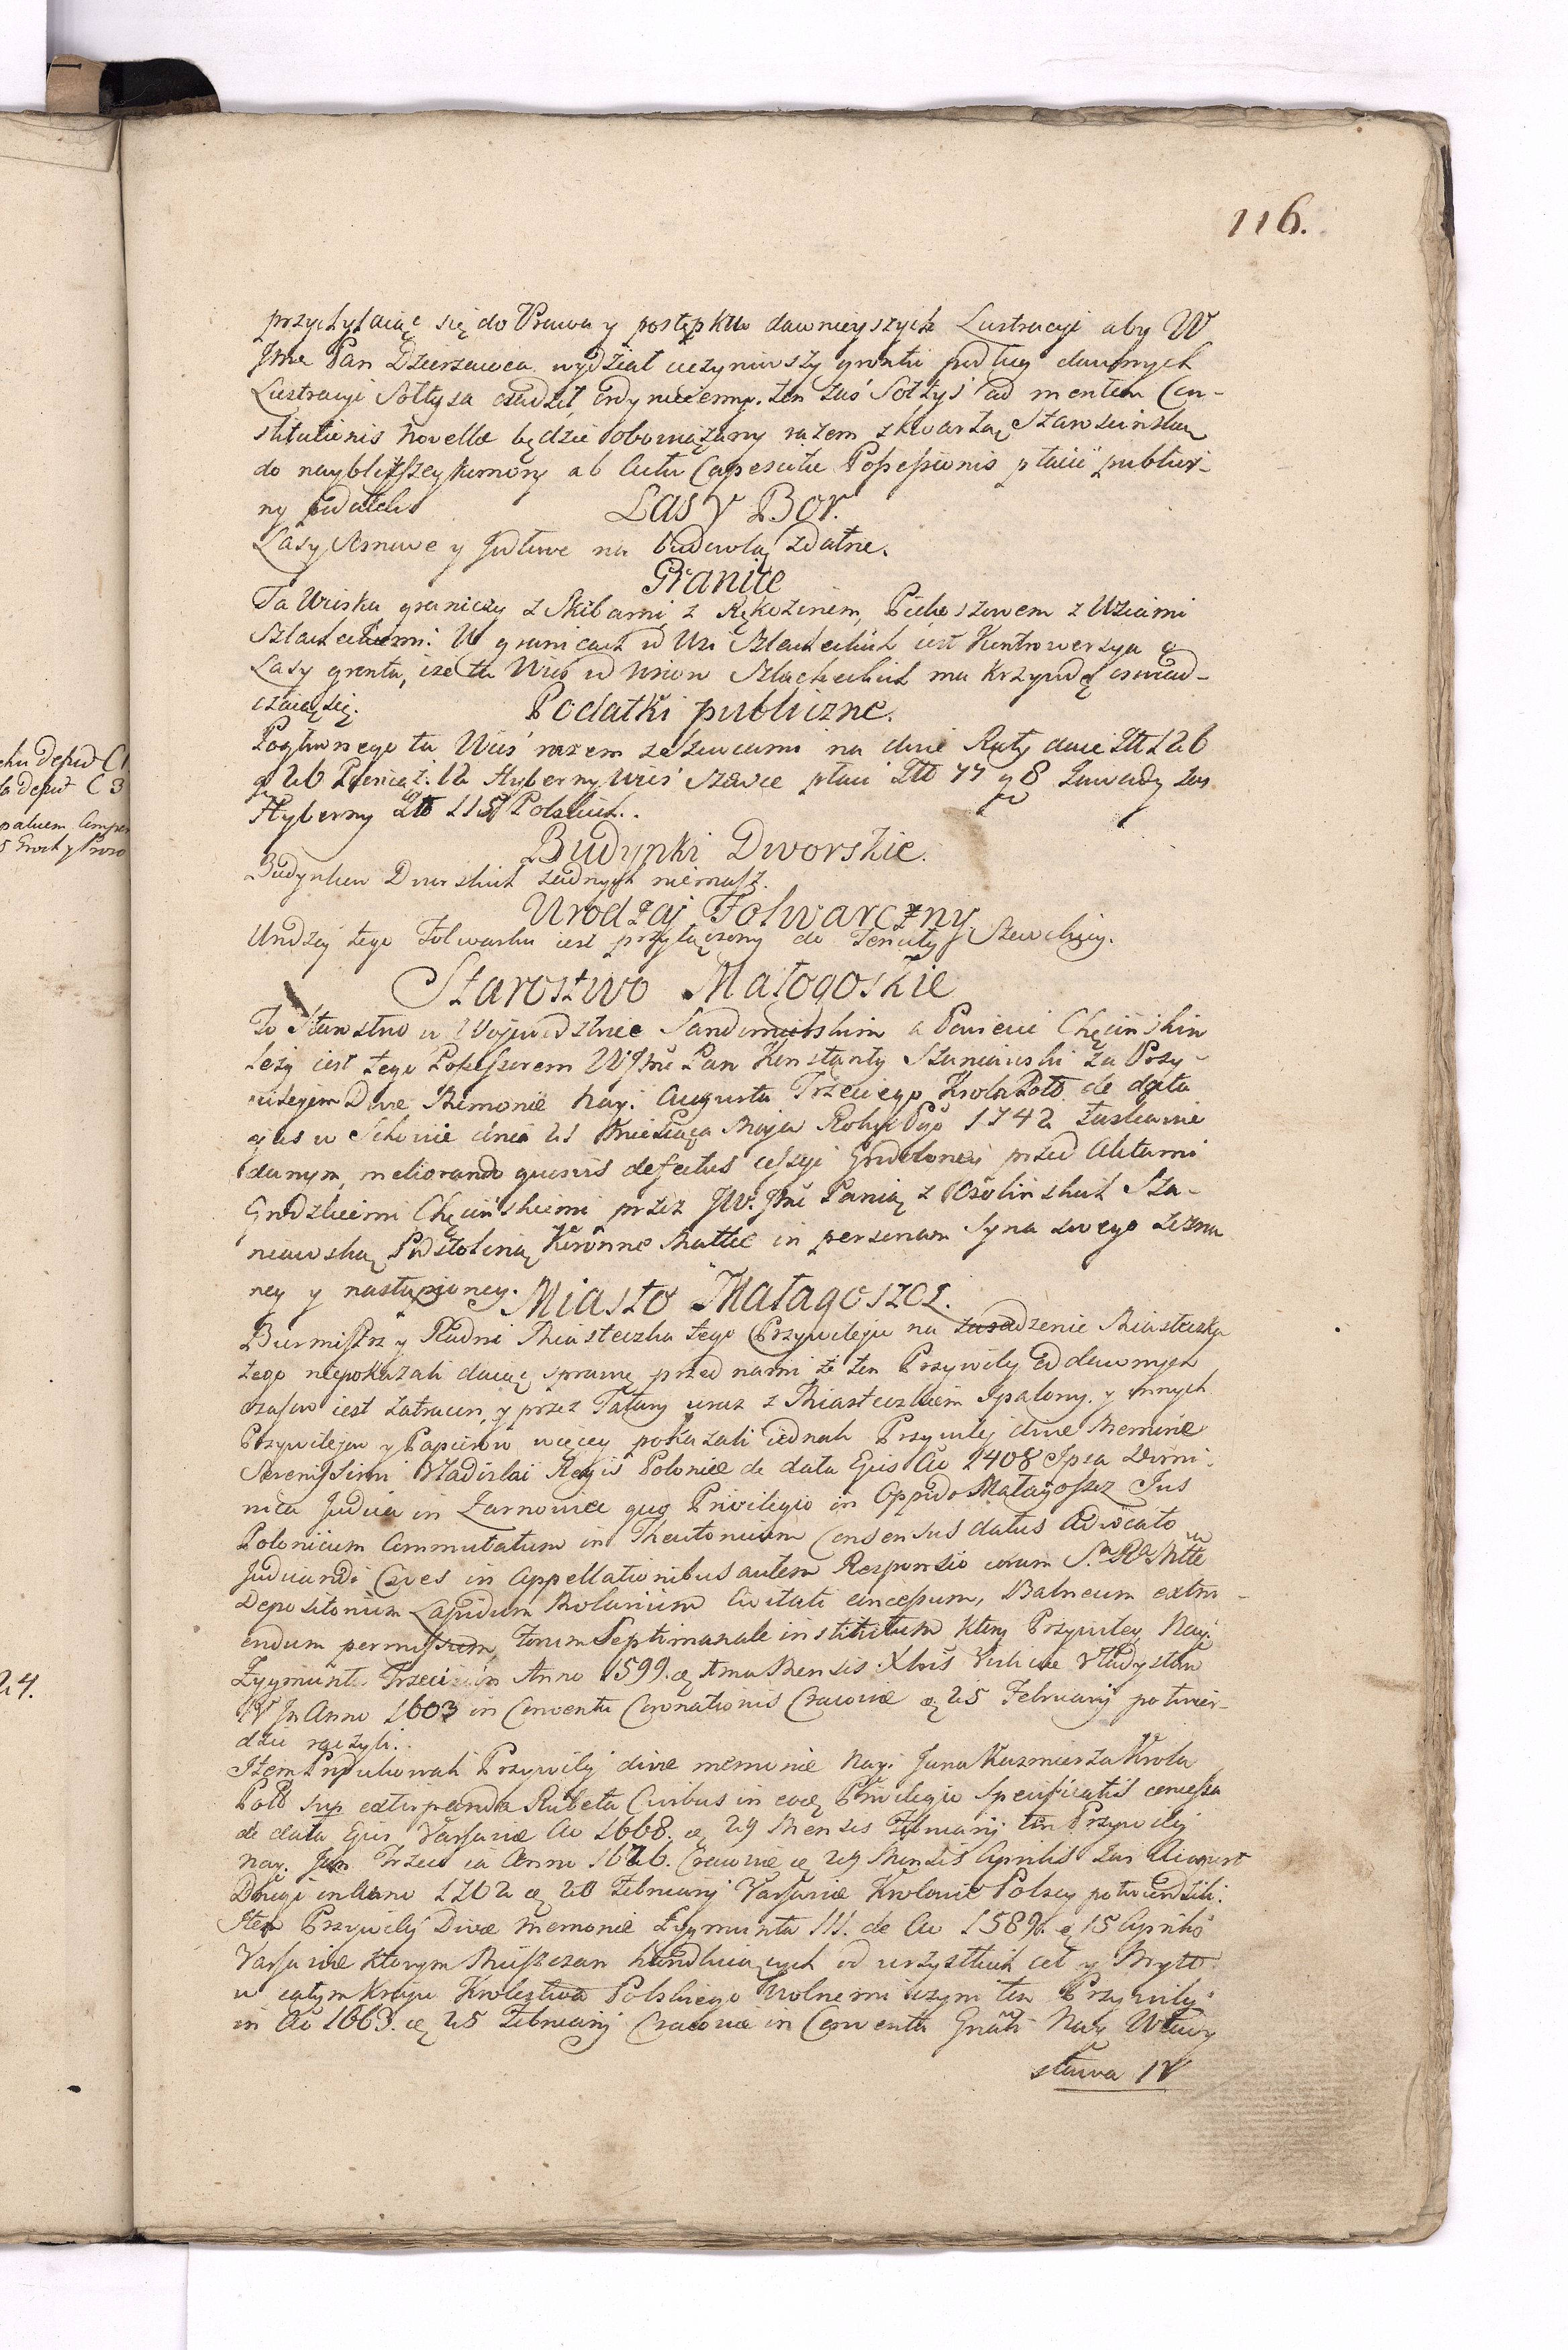 116.
przychylaiąc się do Prawa y postępku dawnieyszych Lustracyi aby W
Jmć Pan Dzierzawca wydział uczyniwszy gruntu podług dawnych
Lustracyi Sołtysa osadził, ordynuiemy. ten zaś Sołtys ad mentem Con-
stitutionis Novellæ będzie obowiązany razem z kwartą Starościńską
do naybliższey komory ab Actu Capescitæ Possessionis płacić publicz-
ny podatek
Las y Bor.
Lasy Sosnowe y Jodłowe na budowlą zdatne.
Granice
Ta Wioska graniczy z Skibami, z Rykoszinem, Piekoszowem z Wsiami
Szlacheckiemi. W granicach od Wsi Szlacheckich iest Kontrowersya o
Lasy grunta, że ta Wieś od Wsiow Szlacheckich ma krzywdę oswiad-
czaiąc się.
Podatki publiczne.
Pogłownego ta Wieś razem ze Szewcami na dwie Raty daie Złł 126
g 26 Pieniąż. Hyberny Wieś Szewce płaci Złł 77 g 8 Zawady zas
Hyberny Złł 115 Polskich.
Budynki Dworskie.
Budynkow Dworskich żadnych niemasz.
Urodzaj Folwarczny.
Urodzaj tego Folwarku iest przyłączony do Tenuty Szewckiey.
Starostwo Małogoskie
To Starostwo w Wojewodztwie Sandomirskim a Powiecie Chęcińskim
leży iest tego Possessorem WJmć Pan Konstanty Szaniawski za Przy-
wilejem Divæ Memoriæ Nay. Augusta Trzeciego Krola Pols. de data
ejus w Sehonie dnia 21 Miesiąca Maja Roku Pgo 1742 łaskawie
danym, meliorando quosvis defectus cessyi Grodzkiey przed Aktami
Grodzkiemi Chęcińskiemi przez JW. Jmć Panią z Ossolinskich Sza-
niawską Podstoliną Koronne Matkę in personam Syna swego zezna
ney y nastąpioney.
Miasto Małagoszcz.
Burmistrz y Radni Miasteczka tego Przywileju na zasadzenie Miasteczka
tego niepokazali daiąc sprawę przed nami że ten Przywiley od dawnych
czasow iest zatracon, y przez Tatary wraz z Miasteczkiem spalony. y innych
Przywilejow y Papierow więcey pokazali iednak Przywiley divæ Memoriæ
Serenissimi Vladislai Regis Poloniæ de data Ejus Ao 1408 Ipsa Domi-
nica Judica in Zarnowiec quo Privilegio in Oppido Małagoszcz Jus
Polonicum Commutatum in Theutonicum Consensus datus Advocato
Judicandi Cives in Appellationibus autem Responsio coram S. R. Mtte
Depositorium Lapidum Molarium Civitati concessum, Balneum extru-
endum permissum, forum Septimanale institutum, ktory Przywiley Nay.
Zygmunt Trzeci in Anno 1599. Mensis Vladysław
IV In Anno 1603 in Conventu Coronationis Cracoviæ 25 February potwier-
dzić raczyli.
Item Produkowali Przywiley divæ memoriæ Nay. Jana Kazmierza Krola
Pols sup extirpanda Rubeta Civibus in eodem Privilegio Specificatis concessa
de data Ejus Varsaviæ Ao 1668. 29 Mensis February ten Przywiley
Nay. Jan Trzeci in Anno 1676. Cracoviæ 29 Mensis Aprilis Zas August
Drugi in Anno 1702 20 February Varsaviæ Krolowie Polscy potwierdzili.
Item Przywiley Divæ Memoriæ Zygmunta III. de Ao 1589. 15 Aprilis
Varsaviæ ktorym Mieszczan handluiących od wszystkich ceł y Myt
w całym kraju Krolestwa Polskiego Wolnemi czyni ten Przywiley
in Ao 1663. 25 February Cracoviæ in Conventu Gnāli Nay Włady
sława IV